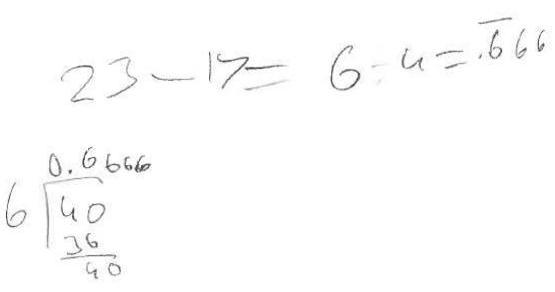 23 - 17 = 6 ÷ 4 = .666
0.6666
6 40
36
40